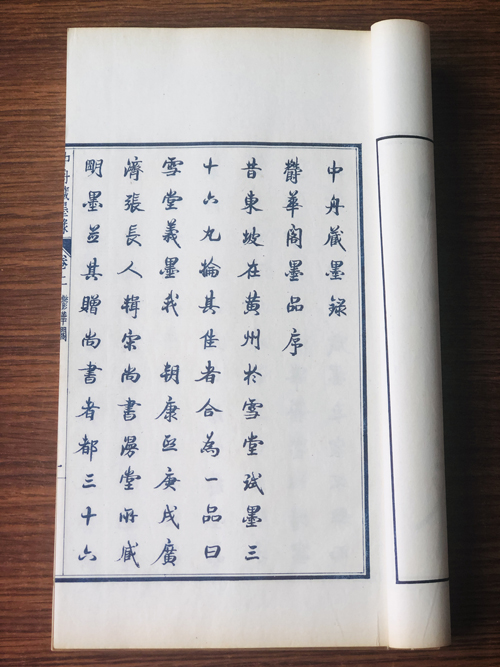 中舟藏墨録
鬱華阁墨品序
昔東坡在黄州於雪堂試墨三
十六丸掄其佳者合為一品曰
雪堂義墨我 朝康熙庚戌廣
濟張長人輯宋尚書漫堂所藏
明墨並其贈尚書者都三十六
中舟藏墨录 卷一 鬱華閣 一